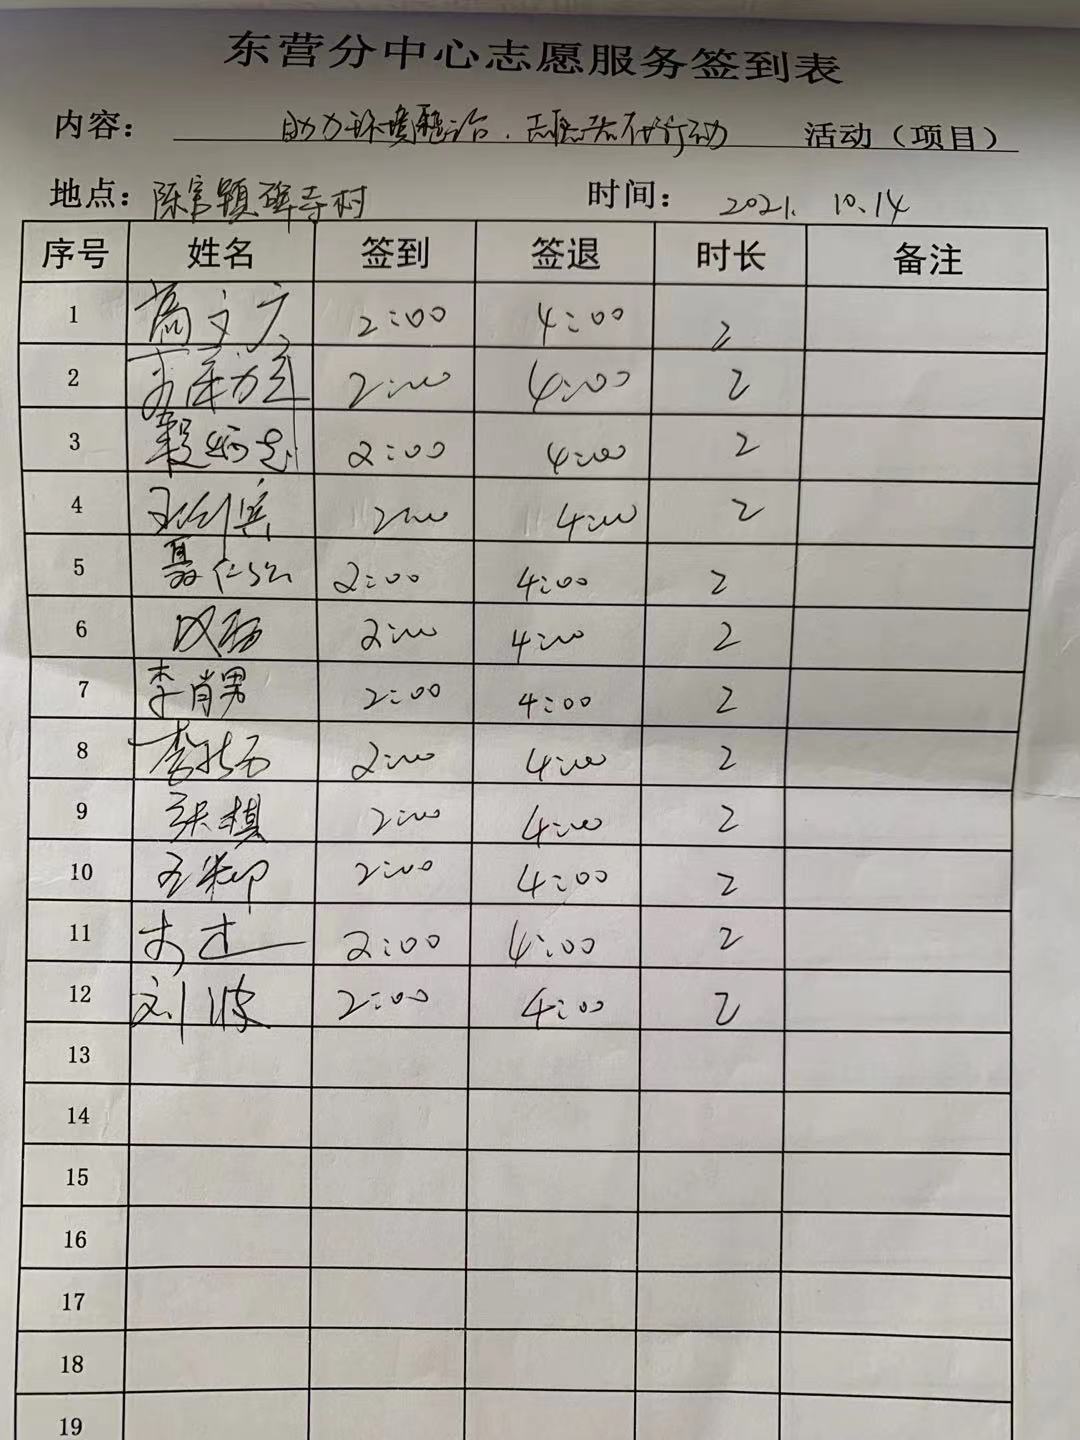 东营分中心志愿服务签到表
内容： 助力环境整治，志愿者在行动 活动（项目）
地点：陈官镇碑寺村 时间： 2021. 10.14
序号 姓名 签到 签退 时长 备注
1 高文广 2:00 4:00 2
2 2:00 4:00 2
3 2:00 4:00 2
4 2:00 4:00 2
5 聂 2:00 4:00 2
6 2:00 4:00 2
7 李肖男 2:00 4:00 2
8 李 2:00 4:00 2
9 张棋 2:00 4:00 2
10 2:00 4:00 2
11 2:00 4:00 2
12 刘波 2:00 4:00 2
13
14
15
16
17
18
19